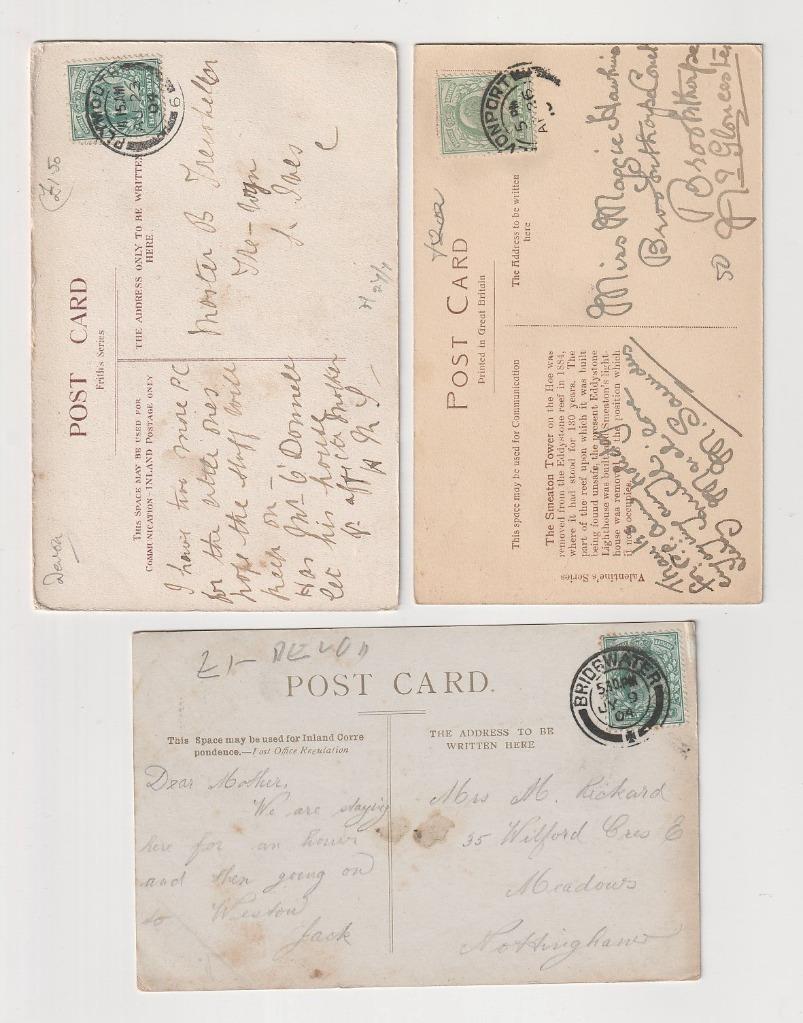 £1.50
Devon
POST CARD
Frith's Series
THIS SPACE MAY BE USED FOR
COMMUNICATION - INLAND POSTAGE ONLY
THE ADDRESS ONLY TO BE WRITTEN
HERE.
PLYMOUTH
I have two more PC
for the little ones
hope the stuff will
keep on
Has Mrs O'Donnell
let his house
Master B
St Ives
POST CARD
Printed in Great Britain
This space may be used for Communication
The Address to be written
here
The Smeaton Tower on the Hoe was
removed from the Eddystone reef in 1884,
where it had stood for 130 years. The
part of the reef upon which it was built
being found unsafe, the present Eddystone
Lighthouse was built and Smeaton's light-
house was removed to the position which
it now occupies.
Valentine's Series
VONPORT
5 PM
Thanks
for P.C.
M. Saunders
Miss Maggie Hawkins
Brookthorpe Court
Brookthorpe
Nr Gloucester
£1- DEVON
POST CARD.
This Space may be used for Inland Corre
pondence.—Post Office Regulation
THE ADDRESS TO BE
WRITTEN HERE
BRIDGWATER
Dear Mother,
We are staying
here for an hour
and then going on
to Weston
Jack
Mrs M. Rickard
35 Wilford Cres E
Meadows
Nottingham